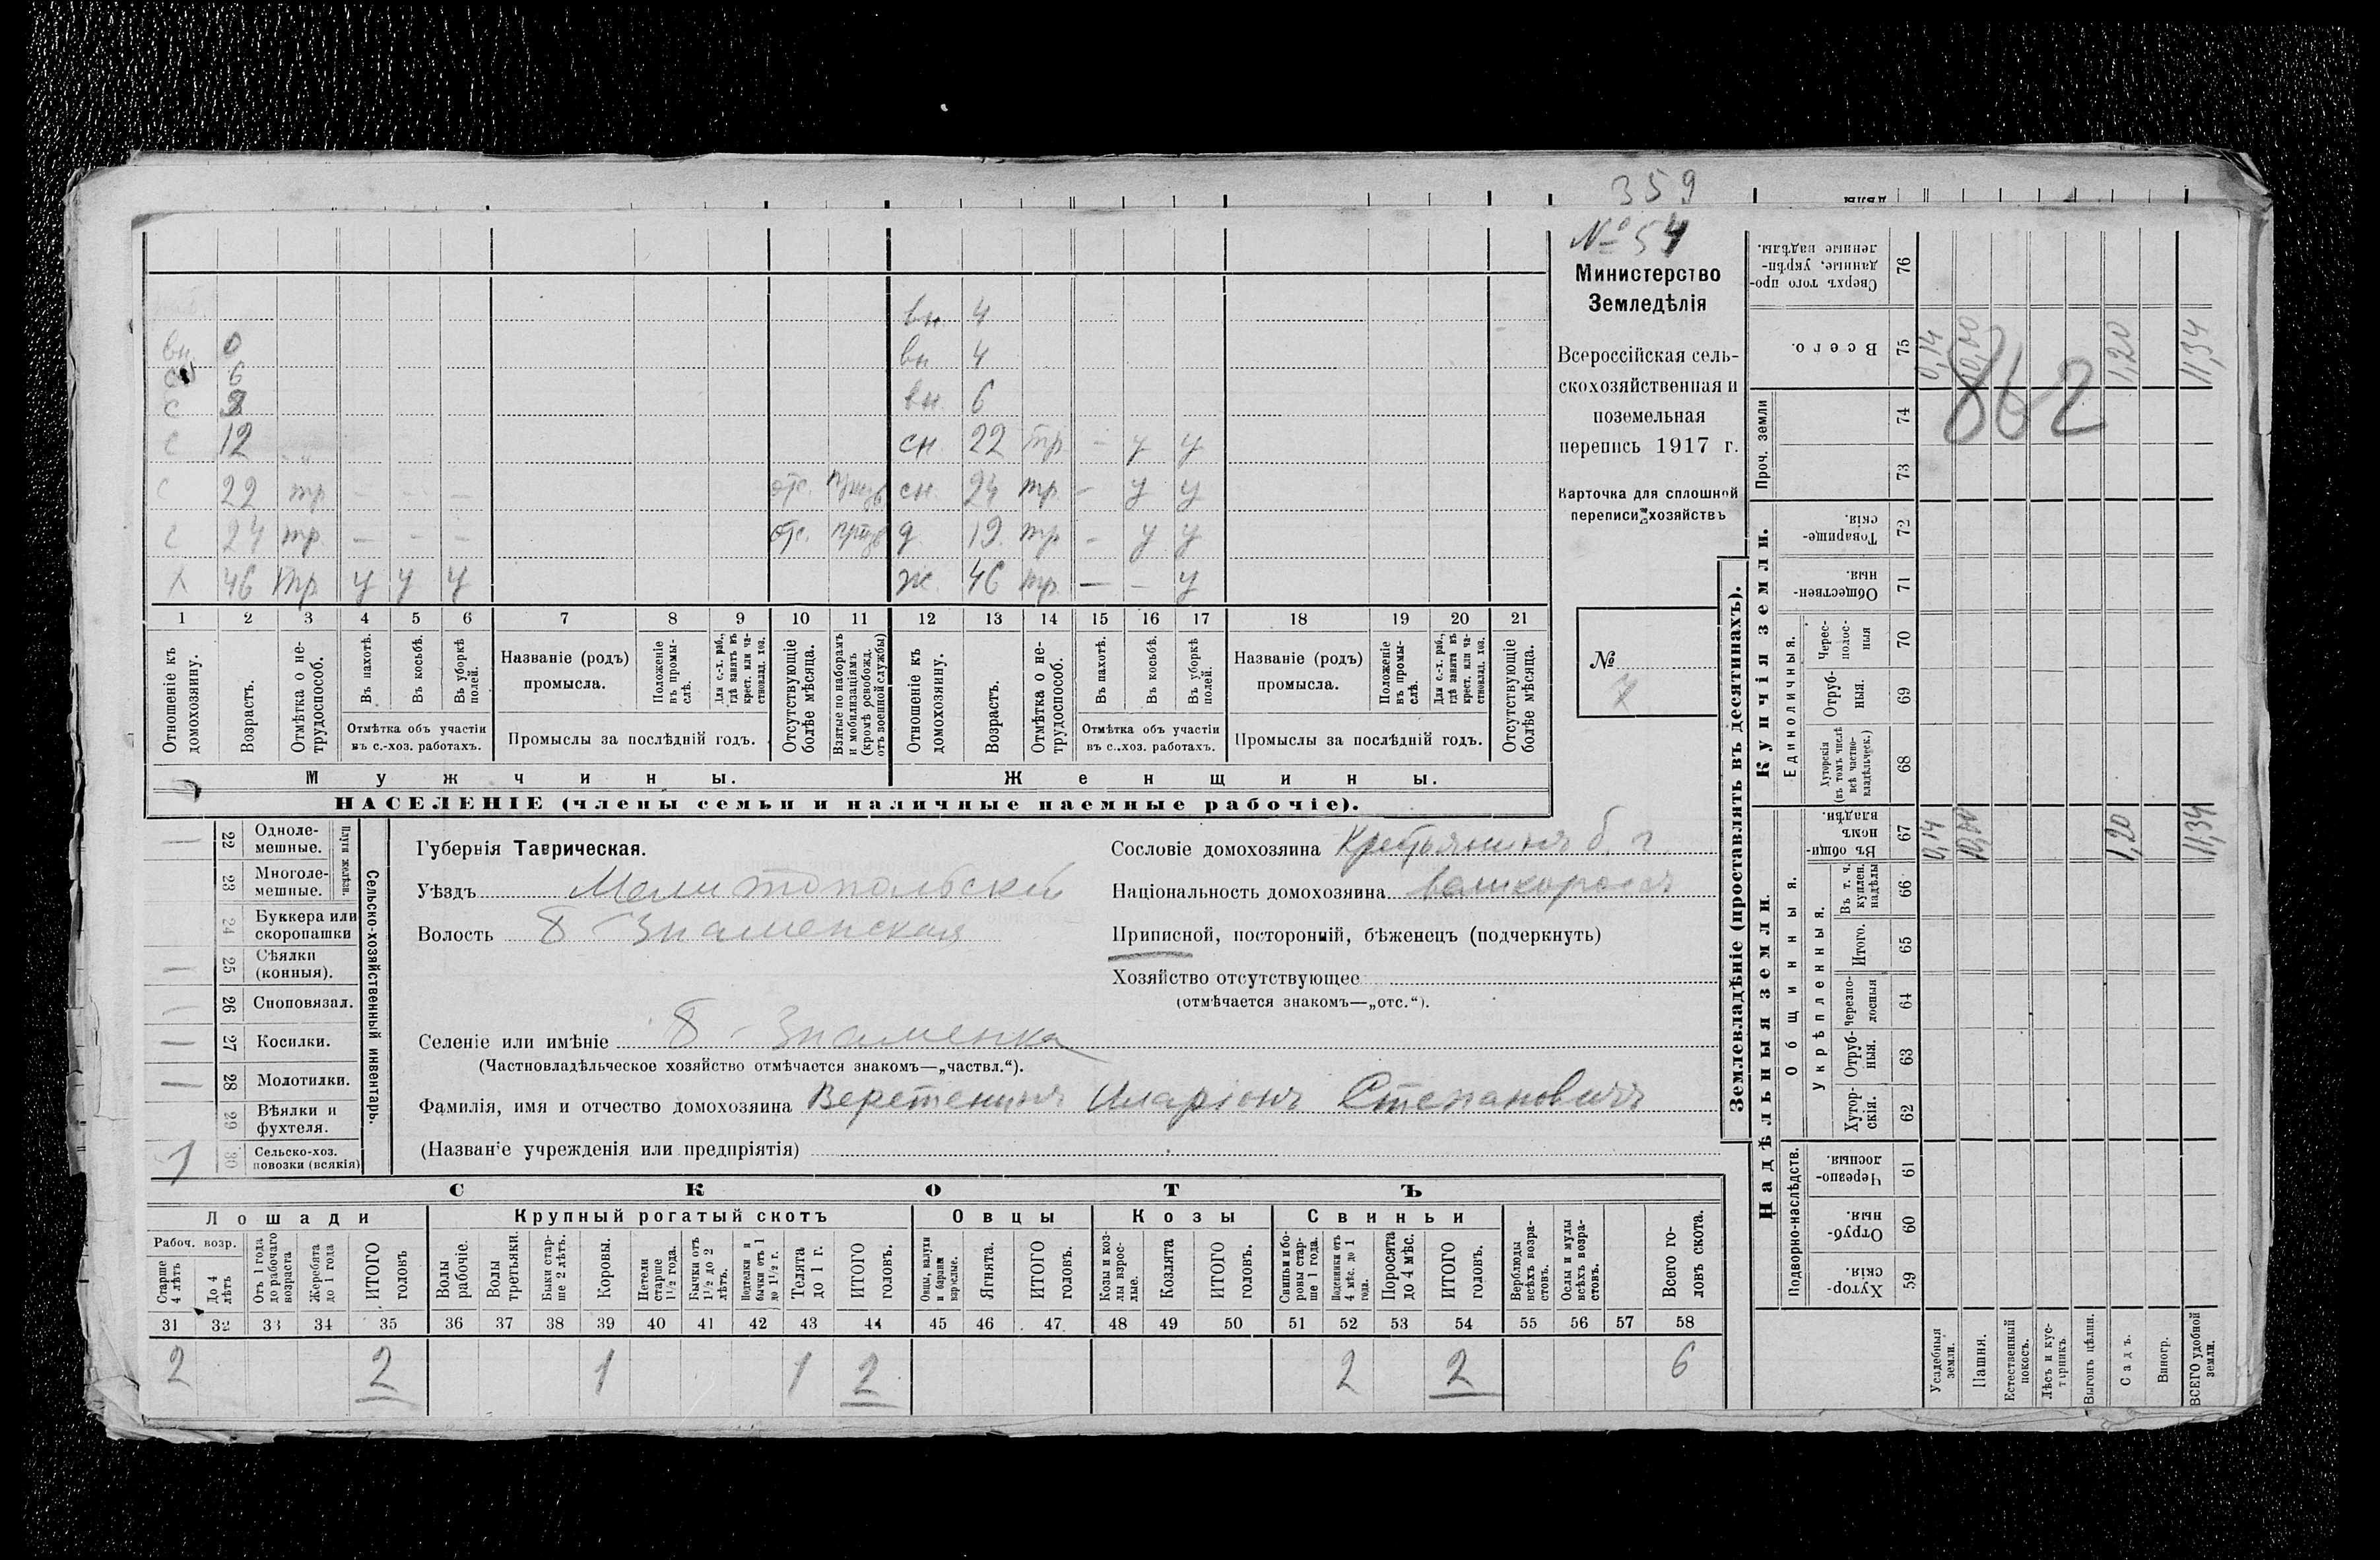 359
№ 54
Министерство
Земледѣлія
Всероссійская сель-
скохозяйственная и
поземельная
перепись 1917 г.
Карточка для сплошной
переписи хозяйствъ
№
вн. 4
вн. 0 вн 4
6
с 9 вн. 6
с 12 сн. 22 тр. - у у
с 22 тр - - - отс. сн. 24 тр. - у у
с 24 тр. - - - отс. д. 19. тр - у у
х 46 тр. у у у ж. 46 тр. - - у
1 2 3 4 5 6 7 8 9 10 11 12 13 14 15 16 17 18 19 20 21
Отношеніе къ домохозяину.
Возрастъ.
Отмѣтка о не-трудоспособ.
Въ пахотѣ.
Въ косьбѣ.
Въ уборкѣ полей.
Отмѣтка объ участіи
въ с.-хоз. работахъ.
Названіе (родъ)
промысла.
Положеніе въ промы-слѣ.
Для с.-х. раб., гдѣ занятъ въ крест. или ча-стновлад. хоз.
Промыслы за послѣдній годъ.
Отсутствующіе болѣе мѣсяца.
Взятые по наборамъ и мобилизаціямъ (кромѣ освобожд. отъ военной службы)
Отношеніе къ домохозяину.
Возрастъ.
Отмѣтка о не-трудоспособ.
Въ пахотѣ.
Въ косьбѣ.
Въ уборкѣ полей.
Отмѣтка объ участіи
въ с.-хоз. работахъ.
Названіе (родъ)
промысла.
Положеніе въ промы-слѣ.
Для с.-х. раб., гдѣ занята въ крест. или ча-стновлад. хоз.
Промыслы за послѣдній годъ.
Отсутствующіе болѣе мѣсяца.
Мужчины. Женщины.
НАСЕЛЕНІЕ (члены семьи и наличные наемные рабочіе).
Сельско-хозяйственный инвентарь.
Плуги желѣзн.
22 Одноле-мешные.
23 Многоле-мешные.
24 Буккера или скоропашки
25 Сѣялки (конныя).
26 Сноповязал.
27 Косилки.
28 Молотилки.
29 Вѣялки и фухтеля.
1 30 Сельско-хоз. повозки (всякія)
Губернія Таврическая.
Уѣздъ Мелитопольскій
Волость Б-Знаменская
Селеніе или имѣніе Б-Знаменка
(Частновладѣльческое хозяйство отмѣчается знакомъ—„частвл.“).
Фамилія, имя и отчество домохозяина Веретенинъ Иларіонъ Степановичъ
(Названіе учрежденія или предпріятія)
Сословіе домохозяина Крестьянинъ б. г.
Національность домохозяина великороссъ
Приписной, посторонній, бѣженецъ (подчеркнуть)
Хозяйство отсутствующее
(отмѣчается знакомъ—„отс.“).
СКОТЪ
Лошади Крупный рогатый скотъ Овцы Козы Свиньи
Рабоч. возр.
Старше 4 лѣтъ
До 4 лѣтъ
Отъ 1 года до рабочаго возраста
Жеребята до 1 года
ИТОГО головъ
Волы рабочіе.
Волы третьяки.
Быки стар-ше 2 лѣтъ.
Коровы.
Нетели старше 1½ года.
Бычки отъ 1½ до 2 лѣтъ.
Подтелки и бычки отъ 1 до 1½ г.
Телята до 1 г.
ИТОГО головъ.
Овцы, валухи и бараны взрослые.
Ягнята.
ИТОГО головъ.
Козы и коз-лы взрос-лые.
Козлята
ИТОГО головъ.
Свиньи и бо-ровы стар-ше 1 года.
Подсвинки отъ 4 мѣс. до 1 года.
Поросята до 4 мѣс.
ИТОГО головъ.
Верблюды всѣхъ возра-стовъ.
Ослы и мулы всѣхъ возра-стовъ.
Всего го-ловъ скота.
31 32 33 34 35 36 37 38 39 40 41 42 43 44 45 46 47 48 49 50 51 52 53 54 55 56 57 58
2 2 1 1 2 2 2 6
Землевладѣніе (проставлять въ десятинахъ).
Надѣльныя земли.
Купчія земли.
Проч. земли
Подворно-наслѣдств.
Общинныя.
Укрѣпленныя.
Единоличныя.
Хутор-скія. 59
Отруб-ныя. 60
Черезпо-лосныя. 61
Хутор-скія. 62
Отруб-ныя. 63
Черезпо-лосныя 64
Итого. 65
Въ т. ч. куплен. надѣлы 66
Въ общи-номъ владѣн. 67
Хуторскія (въ томъ числѣ всѣ частно-владѣльческ.) 68
Отруб-ныя. 69
Черес-полос-ныя 70
Обществен-ныя. 71
Товарище-скія. 72
73
74
Всего. 75
Сверхъ того про-данные, укрѣп-ленные надѣлы. 76
Усадебныя земли. 0,14 0,14
Пашня. 10,00 10,00
Естественный покосъ.
Лѣсъ и кус-тарникъ
Выгонъ цѣлин.
Садъ. 1,20 1,20
Виногр.
ВСЕГО удобной земли. 11,34 11,34
862